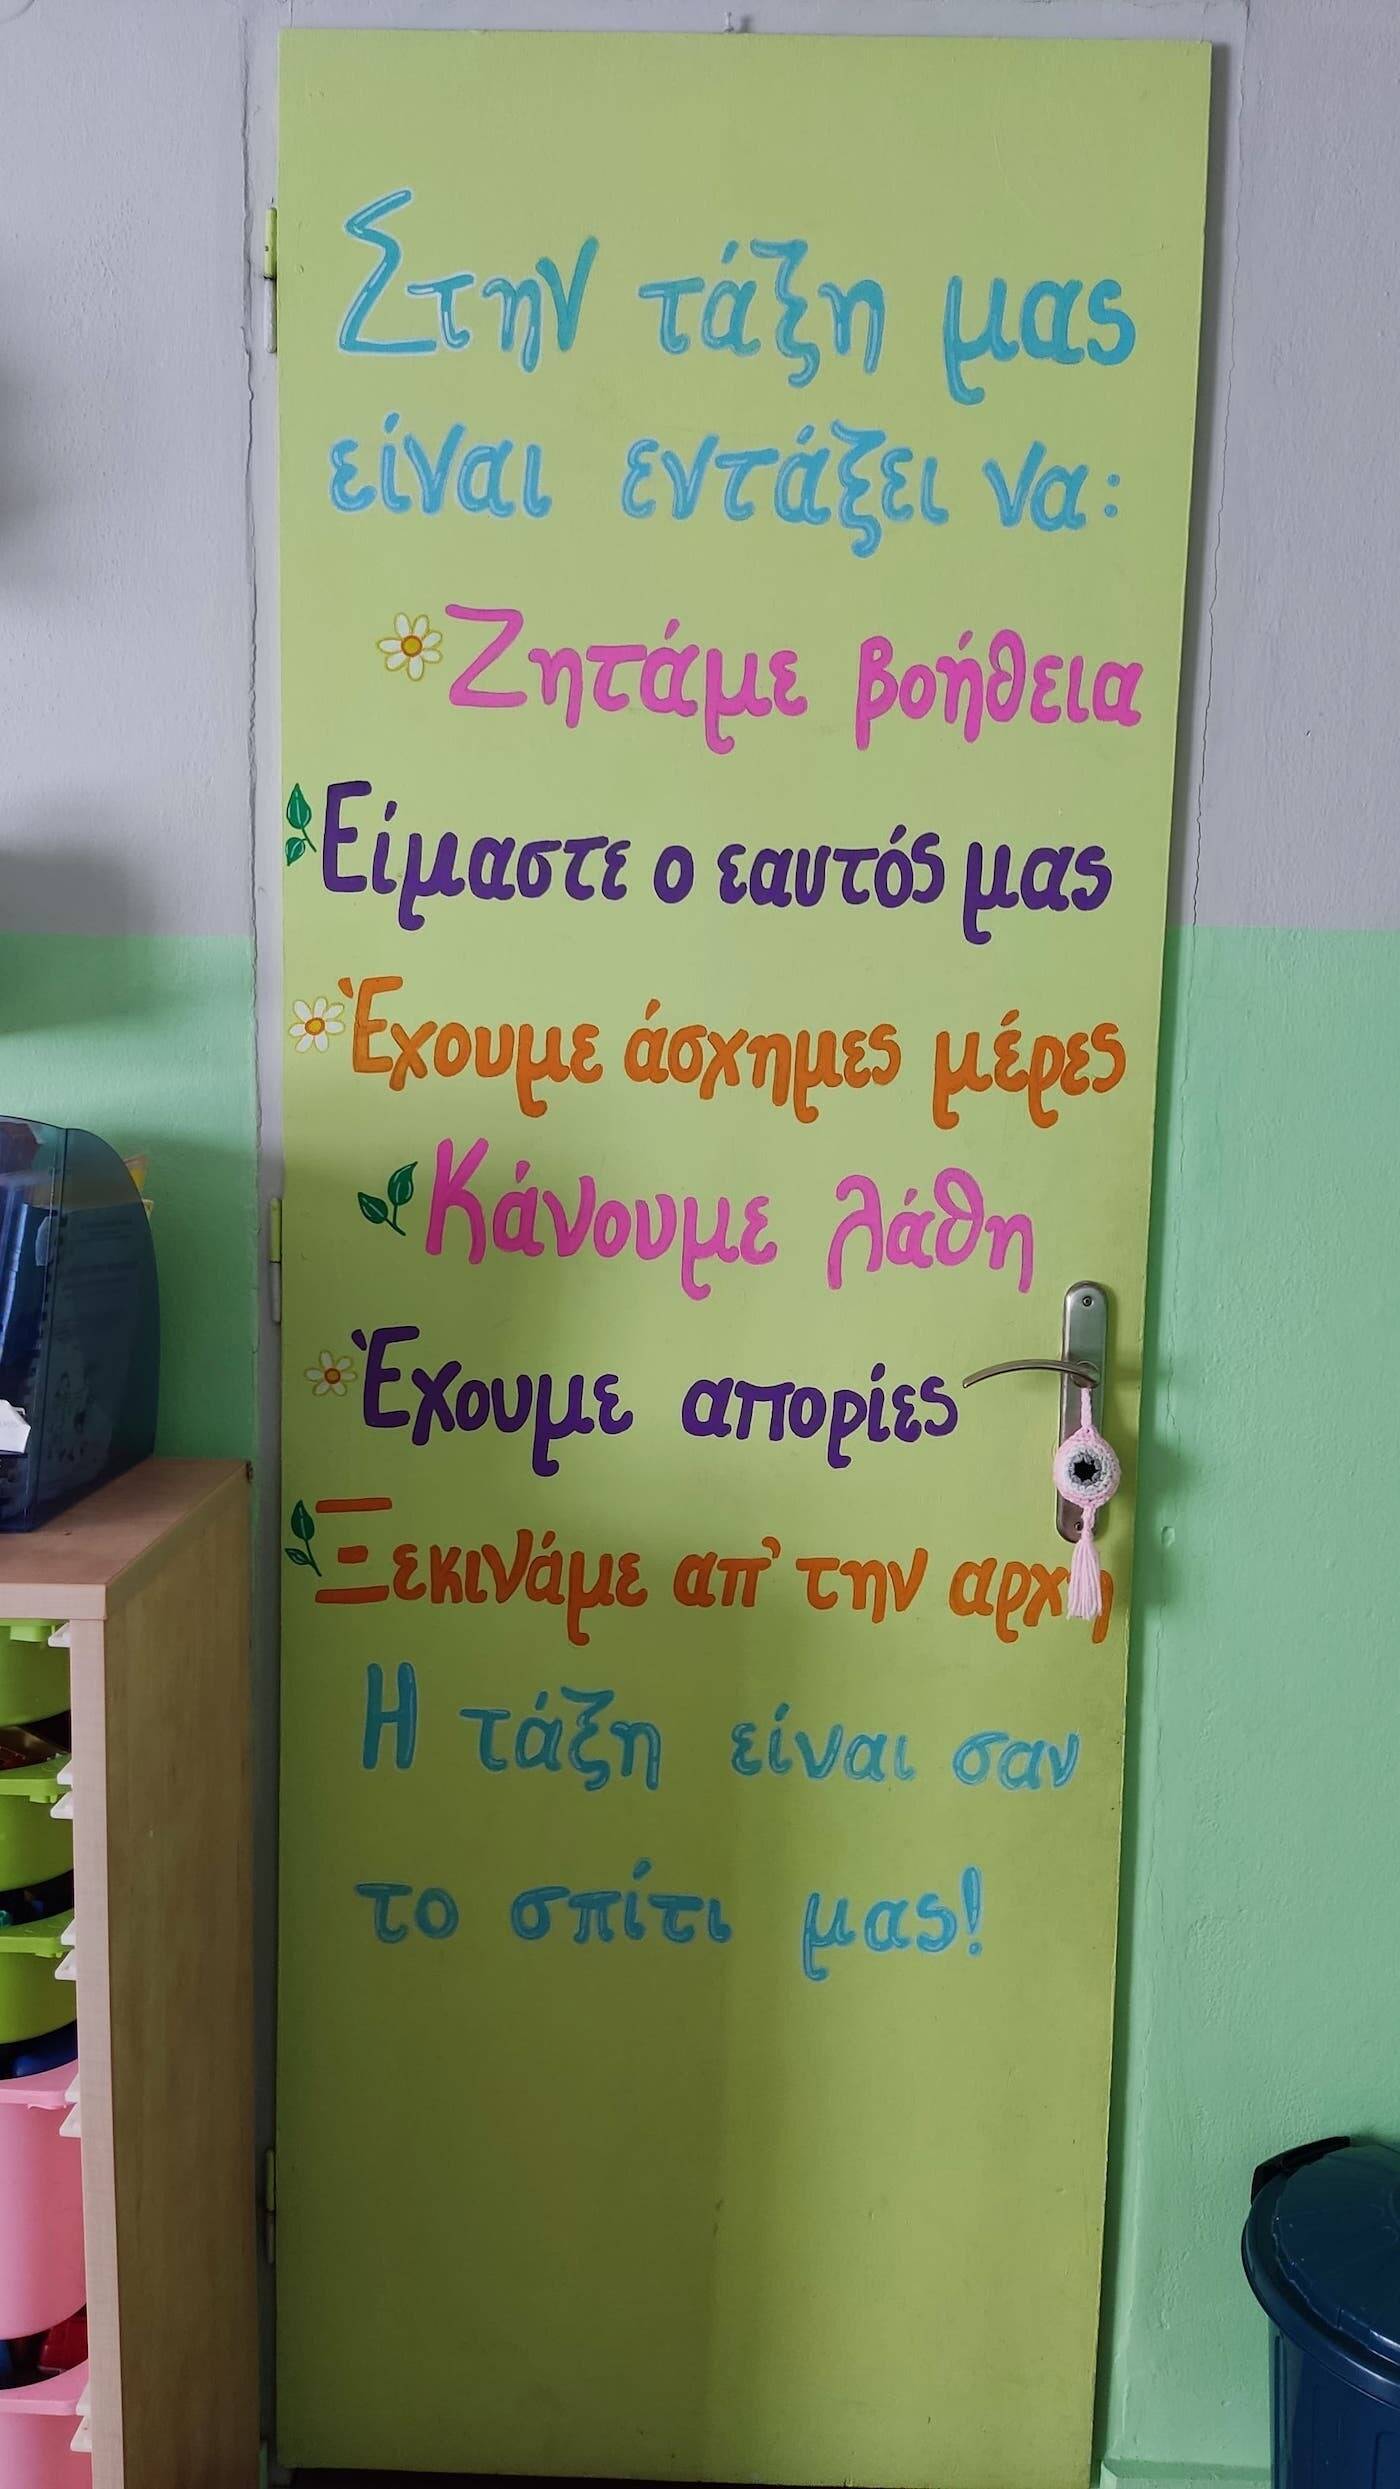 Στην τάξη μας
είναι εντάξει να:
Ζητάμε βοήθεια
Είμαστε ο εαυτός μας
Έχουμε άσχημες μέρες
Κάνουμε λάθη
Έχουμε απορίες
Ξεκινάμε απ' την αρχή
Η τάξη είναι σαν
το σπίτι μας!